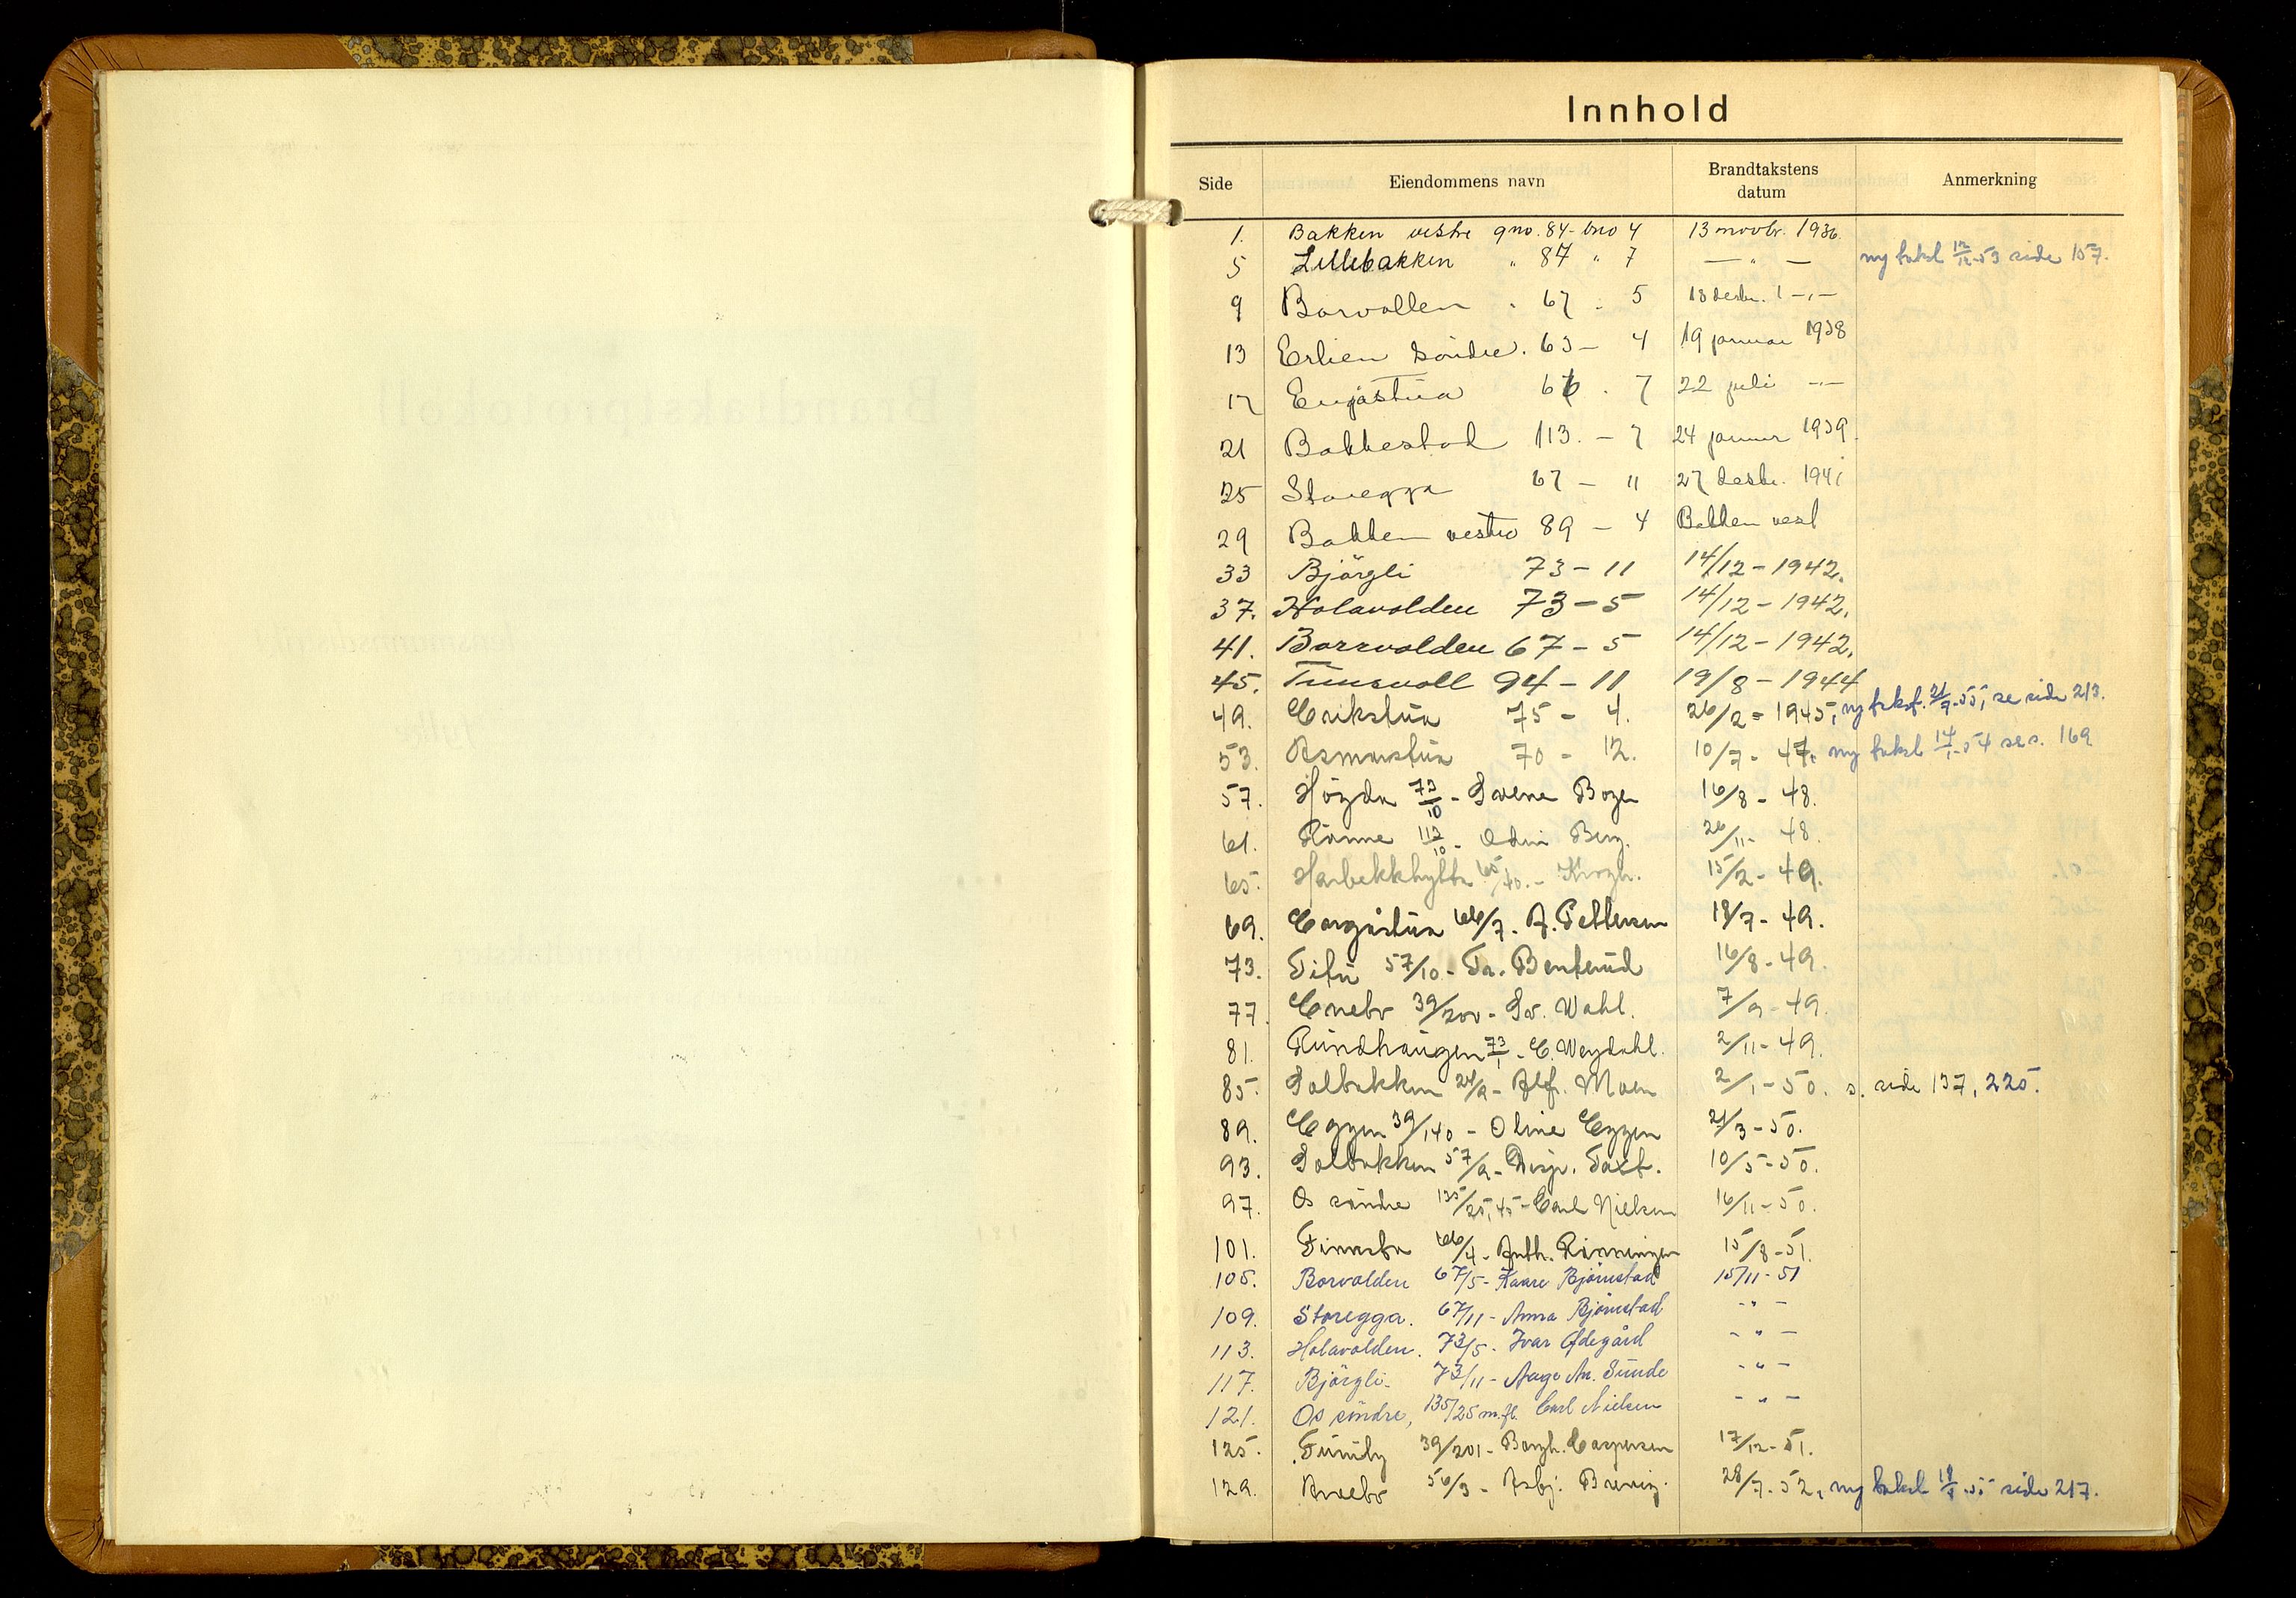 Innhold
Side Eiendommens navn Brandtakstens datum Anmerkning
1. Bakken vestre gno. 84 - bno 4 13 novbr. 1936.
5 Lillebakken " 87 " 7 — " — ny takst 12/12-53 side 157.
9 Borvollen " 67 - 5 18 desbr. 1 -"-
13 Erlien søndre. 63 - 4 19 januar 1938
17 Engåstua 66 . 7 22 juli -"-
21 Bakkestad 113. - 7 24 januar 1939.
25 Storegga 67 - 11 27 desbr. 1941
29 Bakken vestre 89 - 4 Bakken vest
33 Bjørgli 73 - 11 14/12 - 1942.
37. Holavolden 73 - 5 14/12 - 1942.
41. Borrvolden 67 - 5 14/12 - 1942.
45. Tunsvoll 94 - 11 19/8 - 1944
49. Erikstua 75 - 4. 26/2 - 1945, ny takst. 21/7-55, se side 213.
53. Asmustua 70 - 12. 10/7 - 47. ny takst 14/1-54 se s. 169
57. Høgda 73/10 - Boger 16/8 - 48.
61. 112/10 - Odin Berg. 26/11 - 48.
65. Harbekkhytta 65/40. - Krogh. 15/2 - 49.
69. Engåstua 66/7. A. Pettersen 18/7 - 49.
73. 57/10 - Benterud 16/8 - 49.
77. Enebo 39/200 - Sv. Wahl. 7/9 - 49.
81. Rundhaugen 73/1 - E. Weydahl. 2/11 - 49.
85. Solbakken 24/9 - Alf. Moen 2/1 - 50. s. side 137, 225.
89. Eggen 39/140 - Oline Eggen 21/3 - 50.
93. Solbakken 57/9 - 10/5 - 50.
97. Os søndre 135/25,45 - Carl Nielsen 16/11 - 50.
101. Finnstu 66/4 - Anth. Rønningen 15/8 - 51.
105. Borvolden 67/5 - Kaare Bjørnstad 15/11 - 51
109. Storegga. 67/11 - Anna Bjørnstad - " -
113. Holavolden. 73/5 - Ivar Ødegård - " -
117. Bjørgli. 73/11 - Aage An. Sunde - " -
121. Os søndre, 135/25 m.fl. Carl Nielsen - " -
125. Furuly 39/201 - Borgh. Caspersen 17/12 - 51.
129. 56/3 - Asbj. 28/7 - 52. ny takst side 217.